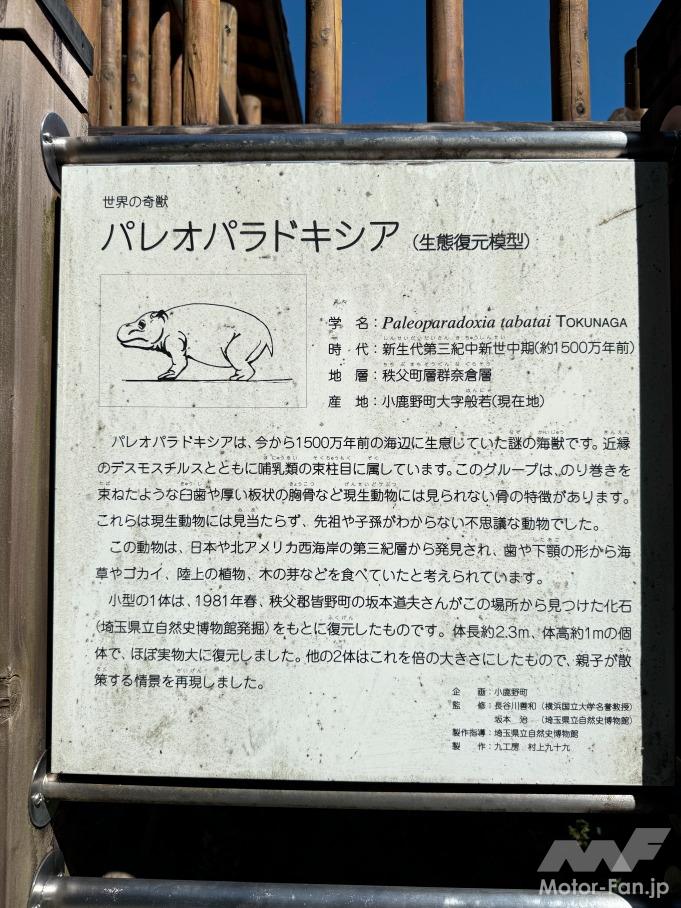 世界の奇獣
パレオパラドキシア（生態復元模型）
学　名：Paleoparadoxia tabatai TOKUNAGA
時　代：新生代第三紀中新世中期(約1500万年前)
地　層：秩父町層群奈倉層
産　地：小鹿野町大字般若(現在地)
パレオパラドキシアは、今から1500万年前の海辺に生息していた謎の海獣です。近縁
のデスモスチルスとともに哺乳類の束柱目に属しています。このグループは、のり巻きを
束ねたような臼歯や厚い板状の胸骨など現生動物には見られない骨の特徴があります。
これらは現生動物には見当たらず、先祖や子孫がわからない不思議な動物でした。
この動物は、日本や北アメリカ西海岸の第三紀層から発見され、歯や下顎の形から海
草やゴカイ、陸上の植物、木の芽などを食べていたと考えられています。
小型の1体は、1981年春、秩父郡皆野町の坂本道夫さんがこの場所から見つけた化石
(埼玉県立自然史博物館発掘)をもとに復元したものです。体長約2.3m、体高約1mの個
体で、ほぼ実物大に復元しました。他の2体はこれを倍の大きさにしたもので、親子が散
策する情景を再現しました。
企　画：小鹿野町
監　修：長谷川善和（横浜国立大学名誉教授）
坂本　治　（埼玉県立自然史博物館）
製作指導：埼玉県立自然史博物館
製　作：九工房　村上九十九
MF
Motor-Fan.jp